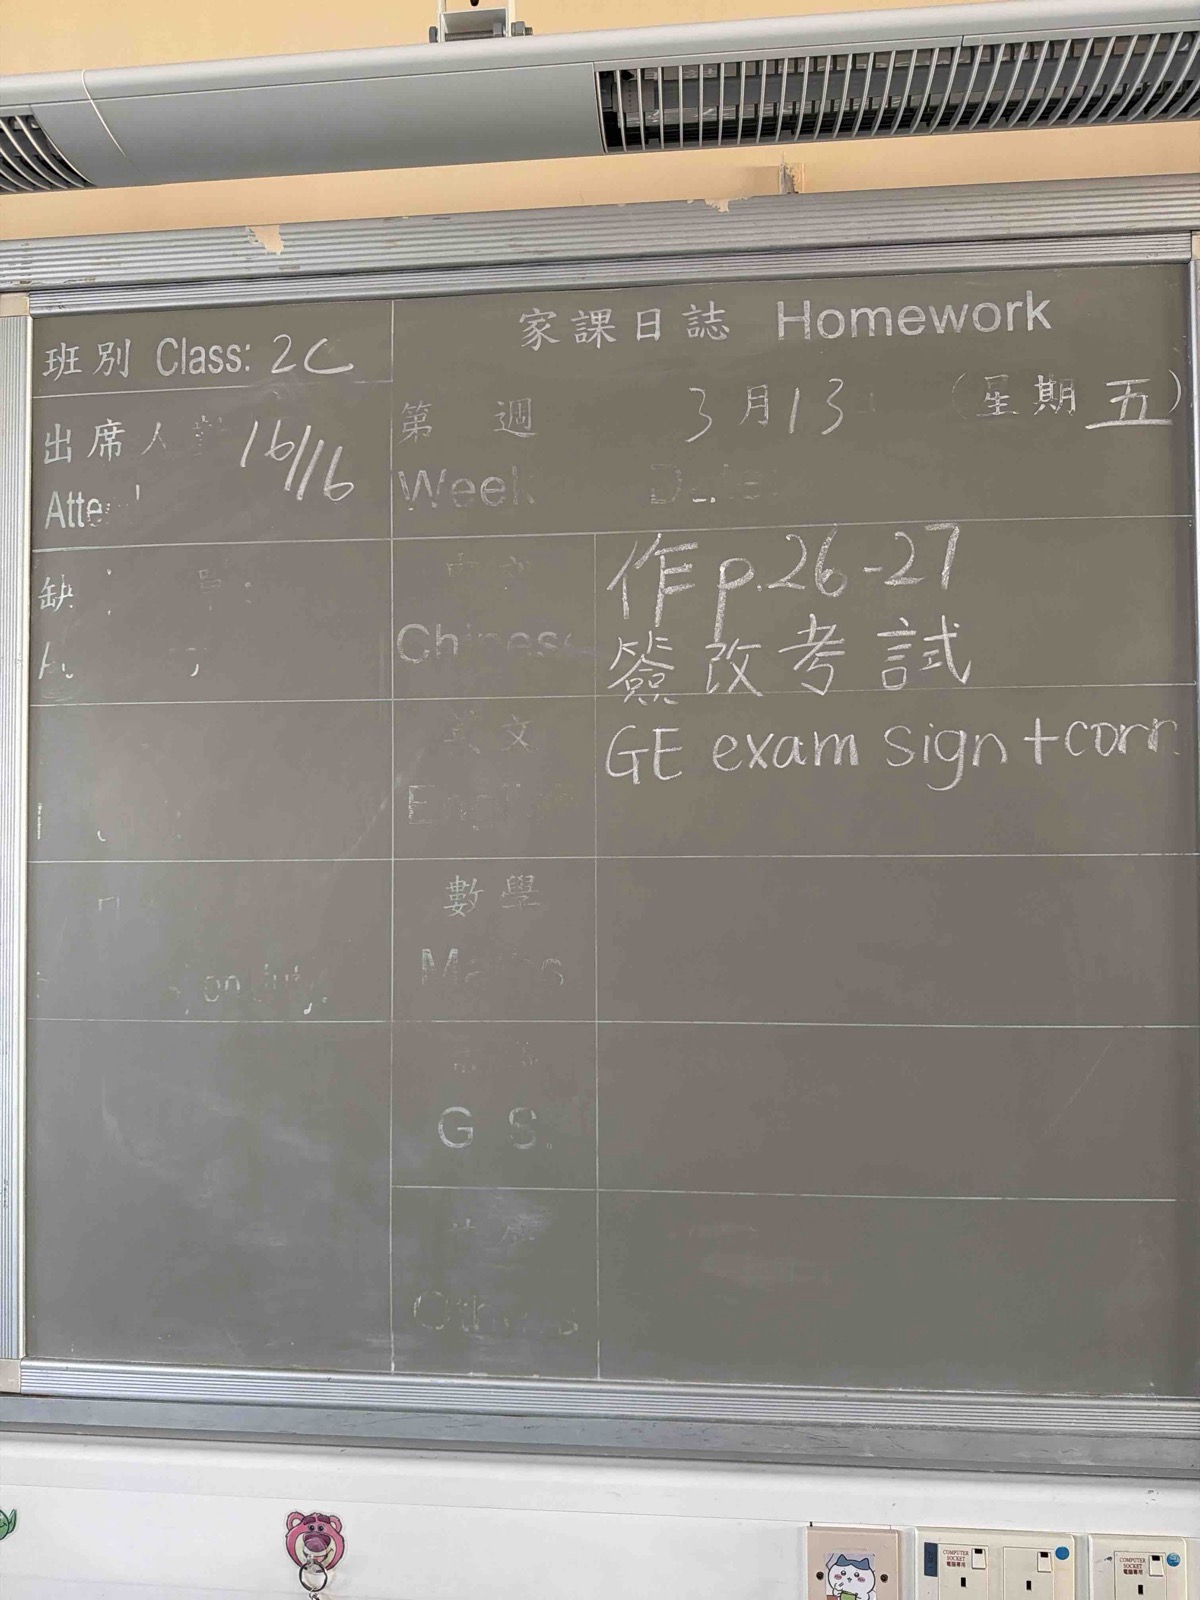 家課日誌 Homework
班別 Class: 2C
出席人 16/16
第 週 3月13 (星期五)
Week Date
作p.26-27
Chinese
簽改考試
英文 GE exam sign+corr.
English
數學
Maths
G S
Others
on duty
COMPUTER SOCKET
電腦專用
COMPUTER SOCKET
電腦專用